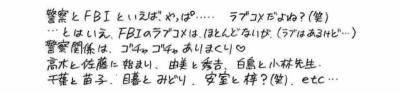 警察とFBIといえばやっぱ…… ラブコメだよね?(笑)
…とはいえ、FBIのラブコメは、ほとんどないが、(ラブはあるけど…)
警察関係は、ゴチャゴチャありまくり♡
高木と佐藤に始まり、由美と秀吉、白鳥と小林先生、
千葉と苗子、目暮とみどり、安室と梓?(笑)、etc…